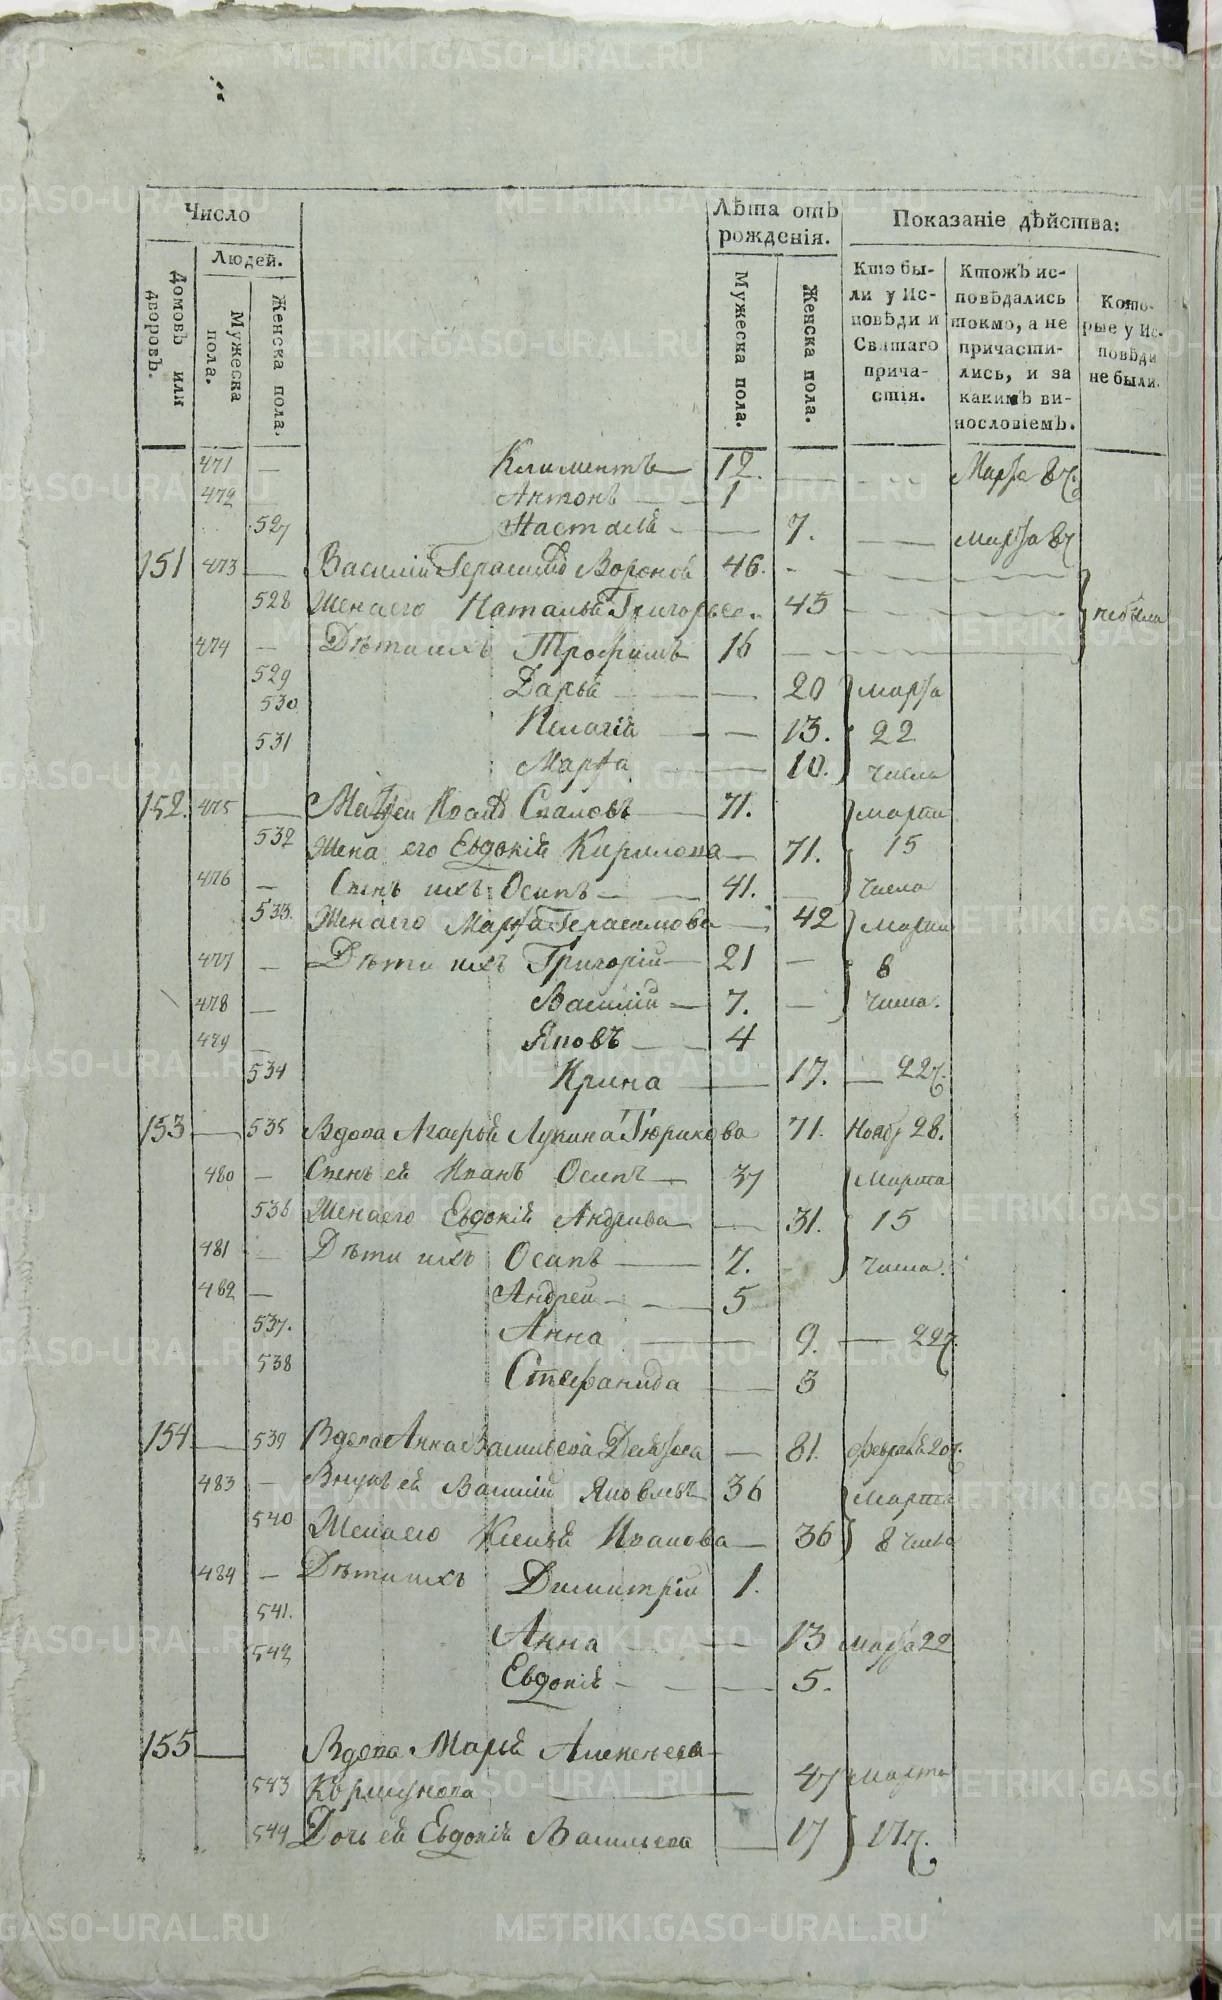 METRIKI.GASO-URAL.RU
Число
Людей.
Домовъ или дворовъ.
Мужеска пола.
Женска пола.
Лѣта отъ рожденія.
Мужеска пола.
Женска пола.
Показаніе дѣйства:
Кто бы-
ли у Ис-
повѣди и
Святаго
прича-
стія.
Ктожъ ис-
повѣдались
токмо, а не
причасти-
лись, и за
какимъ ви-
нословіемъ.
Кото-
рые у Ис-
повѣди
не были.
471 — Климентъ 12. Марта 8 ч.
472 Антонъ 1
527 Настасія 7. Марта 8 ч
151 473 Василій Воронов 46.
528 Жена его Наталья 45 не были
474 — Дѣти ихъ Трофимъ 16
529 Дарья 20 марта
530 Пелагія 13. 22
531 Марфа 10. числа
152. 475 71. марта
532 Жена его Евдокія Кирилова 71. 15
476 — Сынъ ихъ Осипъ 41. числа
533. Жена его Марфа Герасимова 42 марта
477 — Дѣти ихъ Григорій 21 — 8
478 — Василій 7. — числа.
479 — Яковъ 4
534 Ирина 17. — 22 ч.
153 535 Вдова Агафья Лукина Тюрикова 71. Нояб 28.
480 — Сынъ ея Иванъ Осипъ 37 Марта
536 Жена его Евдокія Андреева 31. 15
481 — Дѣти ихъ Осипъ 7. числа.
482 — Андрей 5
537. Анна 9. — 22 ч.
538 Стефанида 3
154 539 Вдова Анна Васильева 81. февраля 20 ч.
483 — Внукъ ея Василій Яковлевъ 36 Марта
540 Жена его Ксенія Иванова 36 8 числа
484 — Дѣти ихъ Димитрій 1.
541. Анна 13 Марта 22
542 Евдокія 5.
155 Вдова Марья Алексеева
543 47 Марта
544 Дочь ея Евдокія Васильева 17 17 ч.